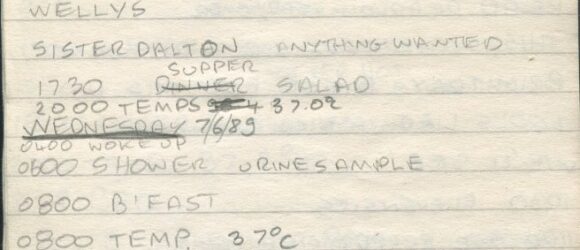 WELLYS
SISTER DALTON ANYTHING WANTED
SUPPER
1730 DINNER SALAD
2000 TEMPS 37.02
WEDNESDAY 7/6/89
0400 WOKE UP
0600 SHOWER URINE SAMPLE
0800 B'FAST
0800 TEMP. 37°C